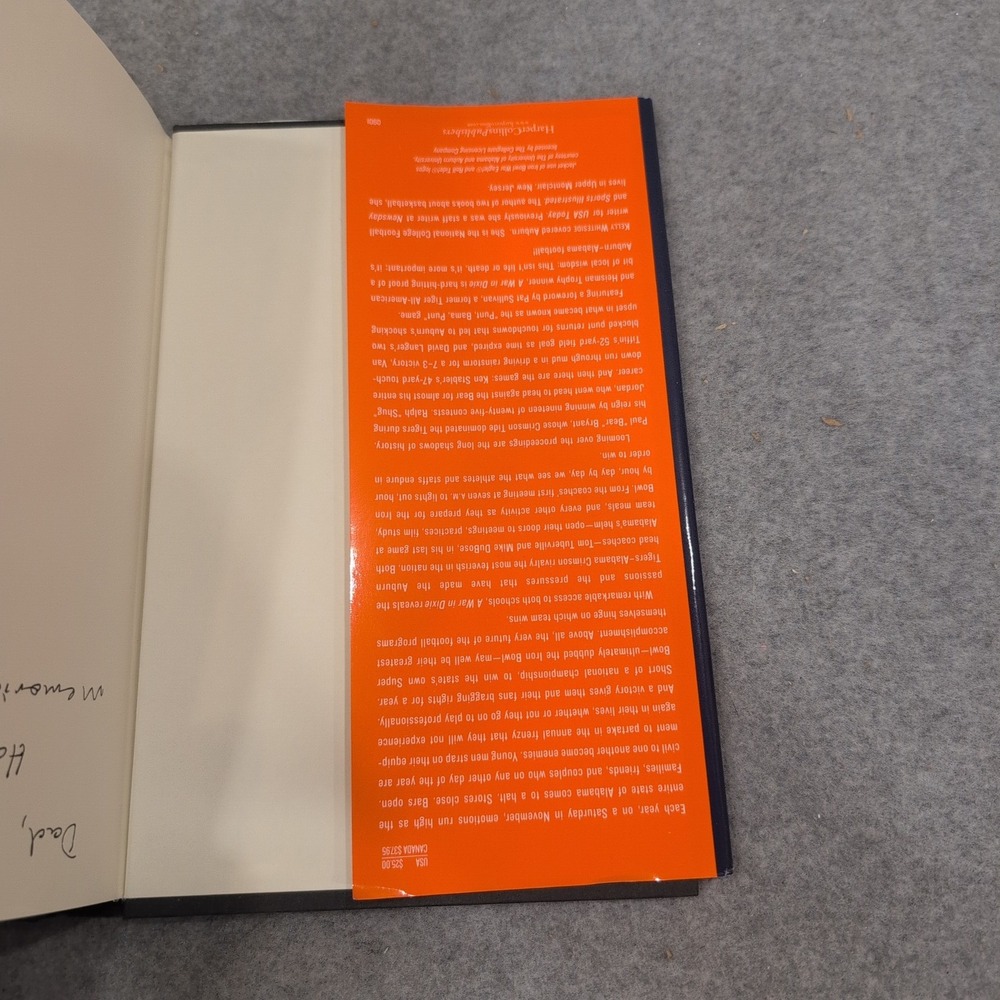 USA $25.00
CANADA $37.95
Each year, on a Saturday in November, emotions run high as the
entire state of Alabama comes to a halt. Stores close. Bars open.
Families, friends, and couples who on any other day of the year are
civil to one another become enemies. Young men strap on their equip-
ment to partake in the annual frenzy that they will not experience
again in their lives, whether or not they go on to play professionally.
And a victory gives them and their fans bragging rights for a year.
Short of a national championship, to win the state's own Super
Bowl—ultimately dubbed the Iron Bowl—may well be their greatest
accomplishment. Above all, the very future of the football programs
themselves hinge on which team wins.
With remarkable access to both schools, A War in Dixie reveals the
passions and the pressures that have made the Auburn
Tigers–Alabama Crimson rivalry the most feverish in the nation. Both
head coaches—Tom Tuberville and Mike DuBose, in his last game at
Alabama's helm—open their doors to meetings, practices, film study,
team meals, and every other activity as they prepare for the Iron
Bowl. From the coaches' first meeting at seven A.M. to lights out, hour
by hour, day by day, we see what the athletes and staffs endure in
order to win.
Looming over the proceedings are the long shadows of history.
Paul "Bear" Bryant, whose Crimson Tide dominated the Tigers during
his reign by winning nineteen of twenty-five contests. Ralph "Shug"
Jordan, who went head to head against the Bear for almost his entire
career. And then there are the games: Ken Stabler's 47-yard touch-
down run through mud in a driving rainstorm for a 7–3 victory, Van
Tiffin's 52-yard field goal as time expired, and David Langer's two
blocked punt returns for touchdowns that led to Auburn's shocking
upset in what became known as the "Punt, Bama, Punt" game.
Featuring a foreword by Pat Sullivan, a former Tiger All-American
and Heisman Trophy winner, A War in Dixie is hard-hitting proof of a
bit of local wisdom: This isn't life or death, it's more important; it's
Auburn–Alabama football!
KELLY WHITESIDE covered Auburn. She is the National College Football
writer for USA Today. Previously she was a staff writer at Newsday
and Sports Illustrated. The author of two books about basketball, she
lives in Upper Montclair, New Jersey.
Jacket use of Iron Bowl War Eagle® and Roll Tide!® logos
courtesy of The University of Alabama and Auburn University,
licensed by The Collegiate Licensing Company
HarperCollinsPublishers
Dad,